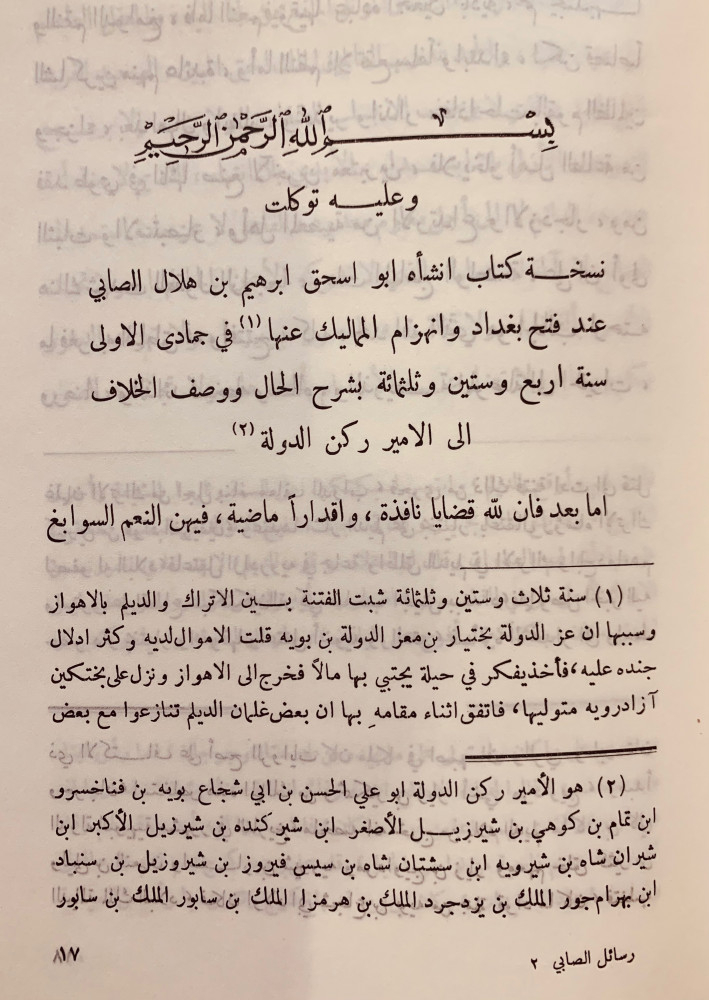 بسم الله الرحمن الرحيم
وعليه توكلت
نسخة كتاب انشأه ابو اسحق ابرهيم بن هلال الصابي
عند فتح بغداد وانهزام المماليك عنها (١) في جمادى الاولى
سنة اربع وستين وثلثمائة بشرح الحال ووصف الخلاف
الى الامير ركن الدولة (٢)
اما بعد فان لله قضايا نافذة ، واقداراً ماضية ، فيهن النعم السوابغ
(١) سنة ثلاث وستين وثلثمائة شبت الفتنة بين الاتراك والديلم بالاهواز
وسببها ان عز الدولة بختيار بن معز الدولة بن بويه قلت الاموال لديه وكثر ادلال
جنده عليه ، فأخذ يفكر في حيلة يجتبي بها مالاً فخرج الى الاهواز ونزل على بختكين
آزادرويه متوليها ، فاتفق اثناء مقامه بها ان بعض غلمان الديلم تنازعوا مع بعض
(٢) هو الأمير ركن الدولة ابو علي الحسن بن ابي شجاع بويه بن فناخسرو
ابن تمام بن كوهي بن شيرزيل الأصغر ابن شيركنده بن شيرزيل الأكبر ابن
شيران شاه بن شيرويه ابن سشتان شاه بن سيس فيروز بن شيروزيل بن سنباد
ابن بهرام جور الملك بن يزدجرد الملك بن هرمزا الملك بن سابور الملك بن سابور
رسائل الصابي ٢
١٧